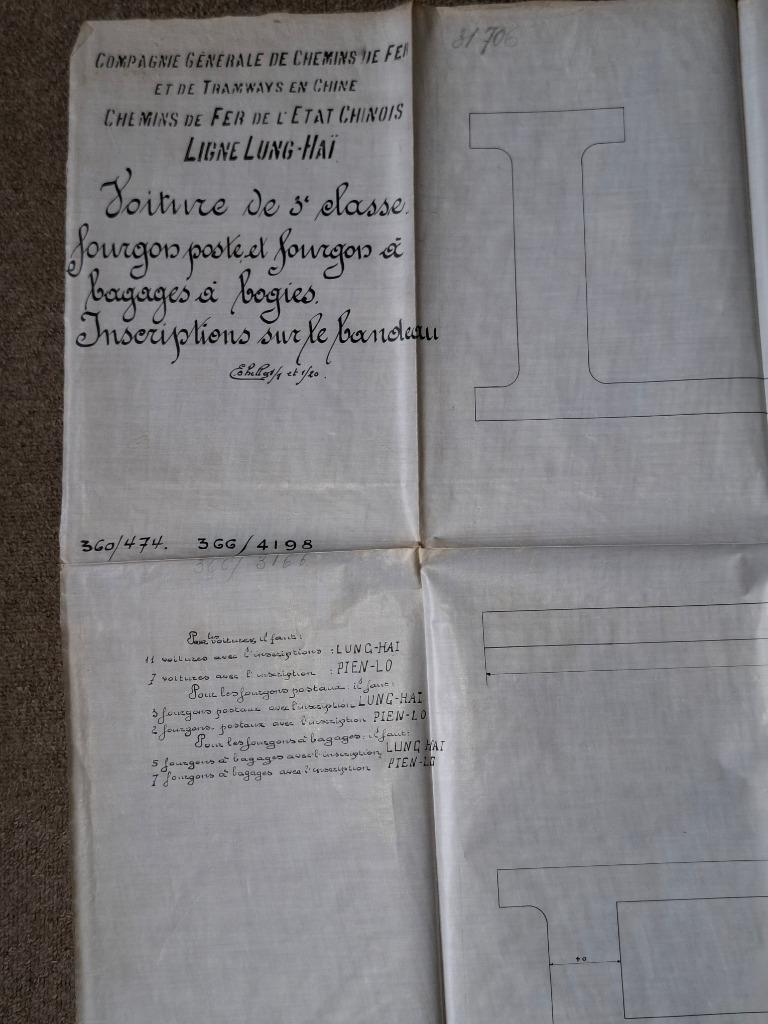 COMPAGNIE GÉNÉRALE DE CHEMINS DE FER
ET DE TRAMWAYS EN CHINE
CHEMINS DE FER DE L'ETAT CHINOIS
LIGNE LUNG-HAÏ
Voiture de 3e classe.
fourgon poste, et fourgon à
bagages à bogies.
Inscriptions sur le bandeau
Echelles 1/1 et 1/20.
31 706
360/474. 366/4198
366/ 3166
Pour les voitures, il faut:
11 voitures avec l'inscriptions : LUNG-HAI
7 voitures avec l'inscription : PIEN-LO
Pour les fourgons postaux: il faut:
3 fourgons postaux avec l'inscription LUNG-HAI
2 fourgons, postaux avec l'inscription PIEN-LO
Pour les fourgons à bagages: il faut:
5 fourgons à bagages avec l'inscription LUNG HAI
7 fourgons à bagages avec l'inscription PIEN-LO
40